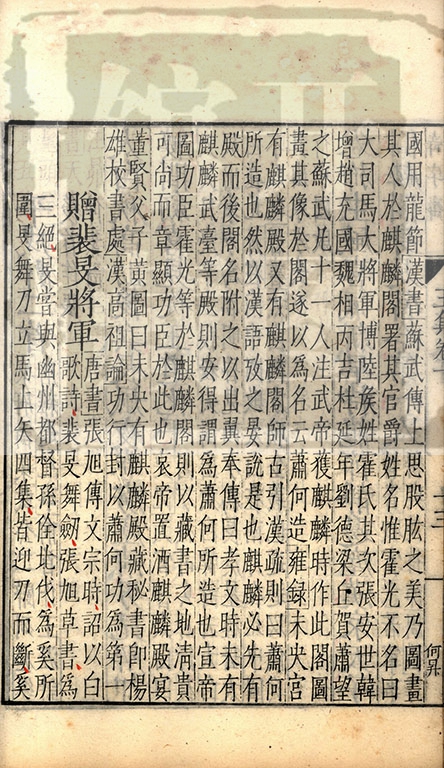 國用龍節漢書蘇武傳上思股肱之美乃圖畫
其人於麒麟閣署其官爵姓名惟霍光不名曰
大司馬大將軍博陸矦姓霍氏其次張安世韓
增趙充國魏相丙吉杜延年劉德梁丘賀蕭望
之蘇武凡十一人注武帝獲麒麟時作此閣圖
畫其像於閣遂以為名云蕭何造雍録未央宮
有麒麟殿又有麒麟閣師古引漢疏則曰蕭何
所造也然以漢語攷之晏説是也麒麟必先有
殿而後閣名附之以出翼奉傳曰孝文時未有
麒麟武臺等殿則安得謂為蕭何所造也宣帝
圖功臣霍光等於麒麟閣則以藏書之地清貴
可尚而章顯功臣於此也哀帝置酒麒麟殿宴
董賢父子黃圖曰未央有麒麟殿藏秘書即楊
雄校書處漢高祖論功行封以蕭何功為第一
贈裴旻將軍
唐書張旭傳文宗時詔以白
歌詩裴旻舞劒張旭草書為
三絕旻嘗與幽州都督孫佺北伐為奚所
圍旻舞刀立馬上矢四集皆迎刃而斷奚